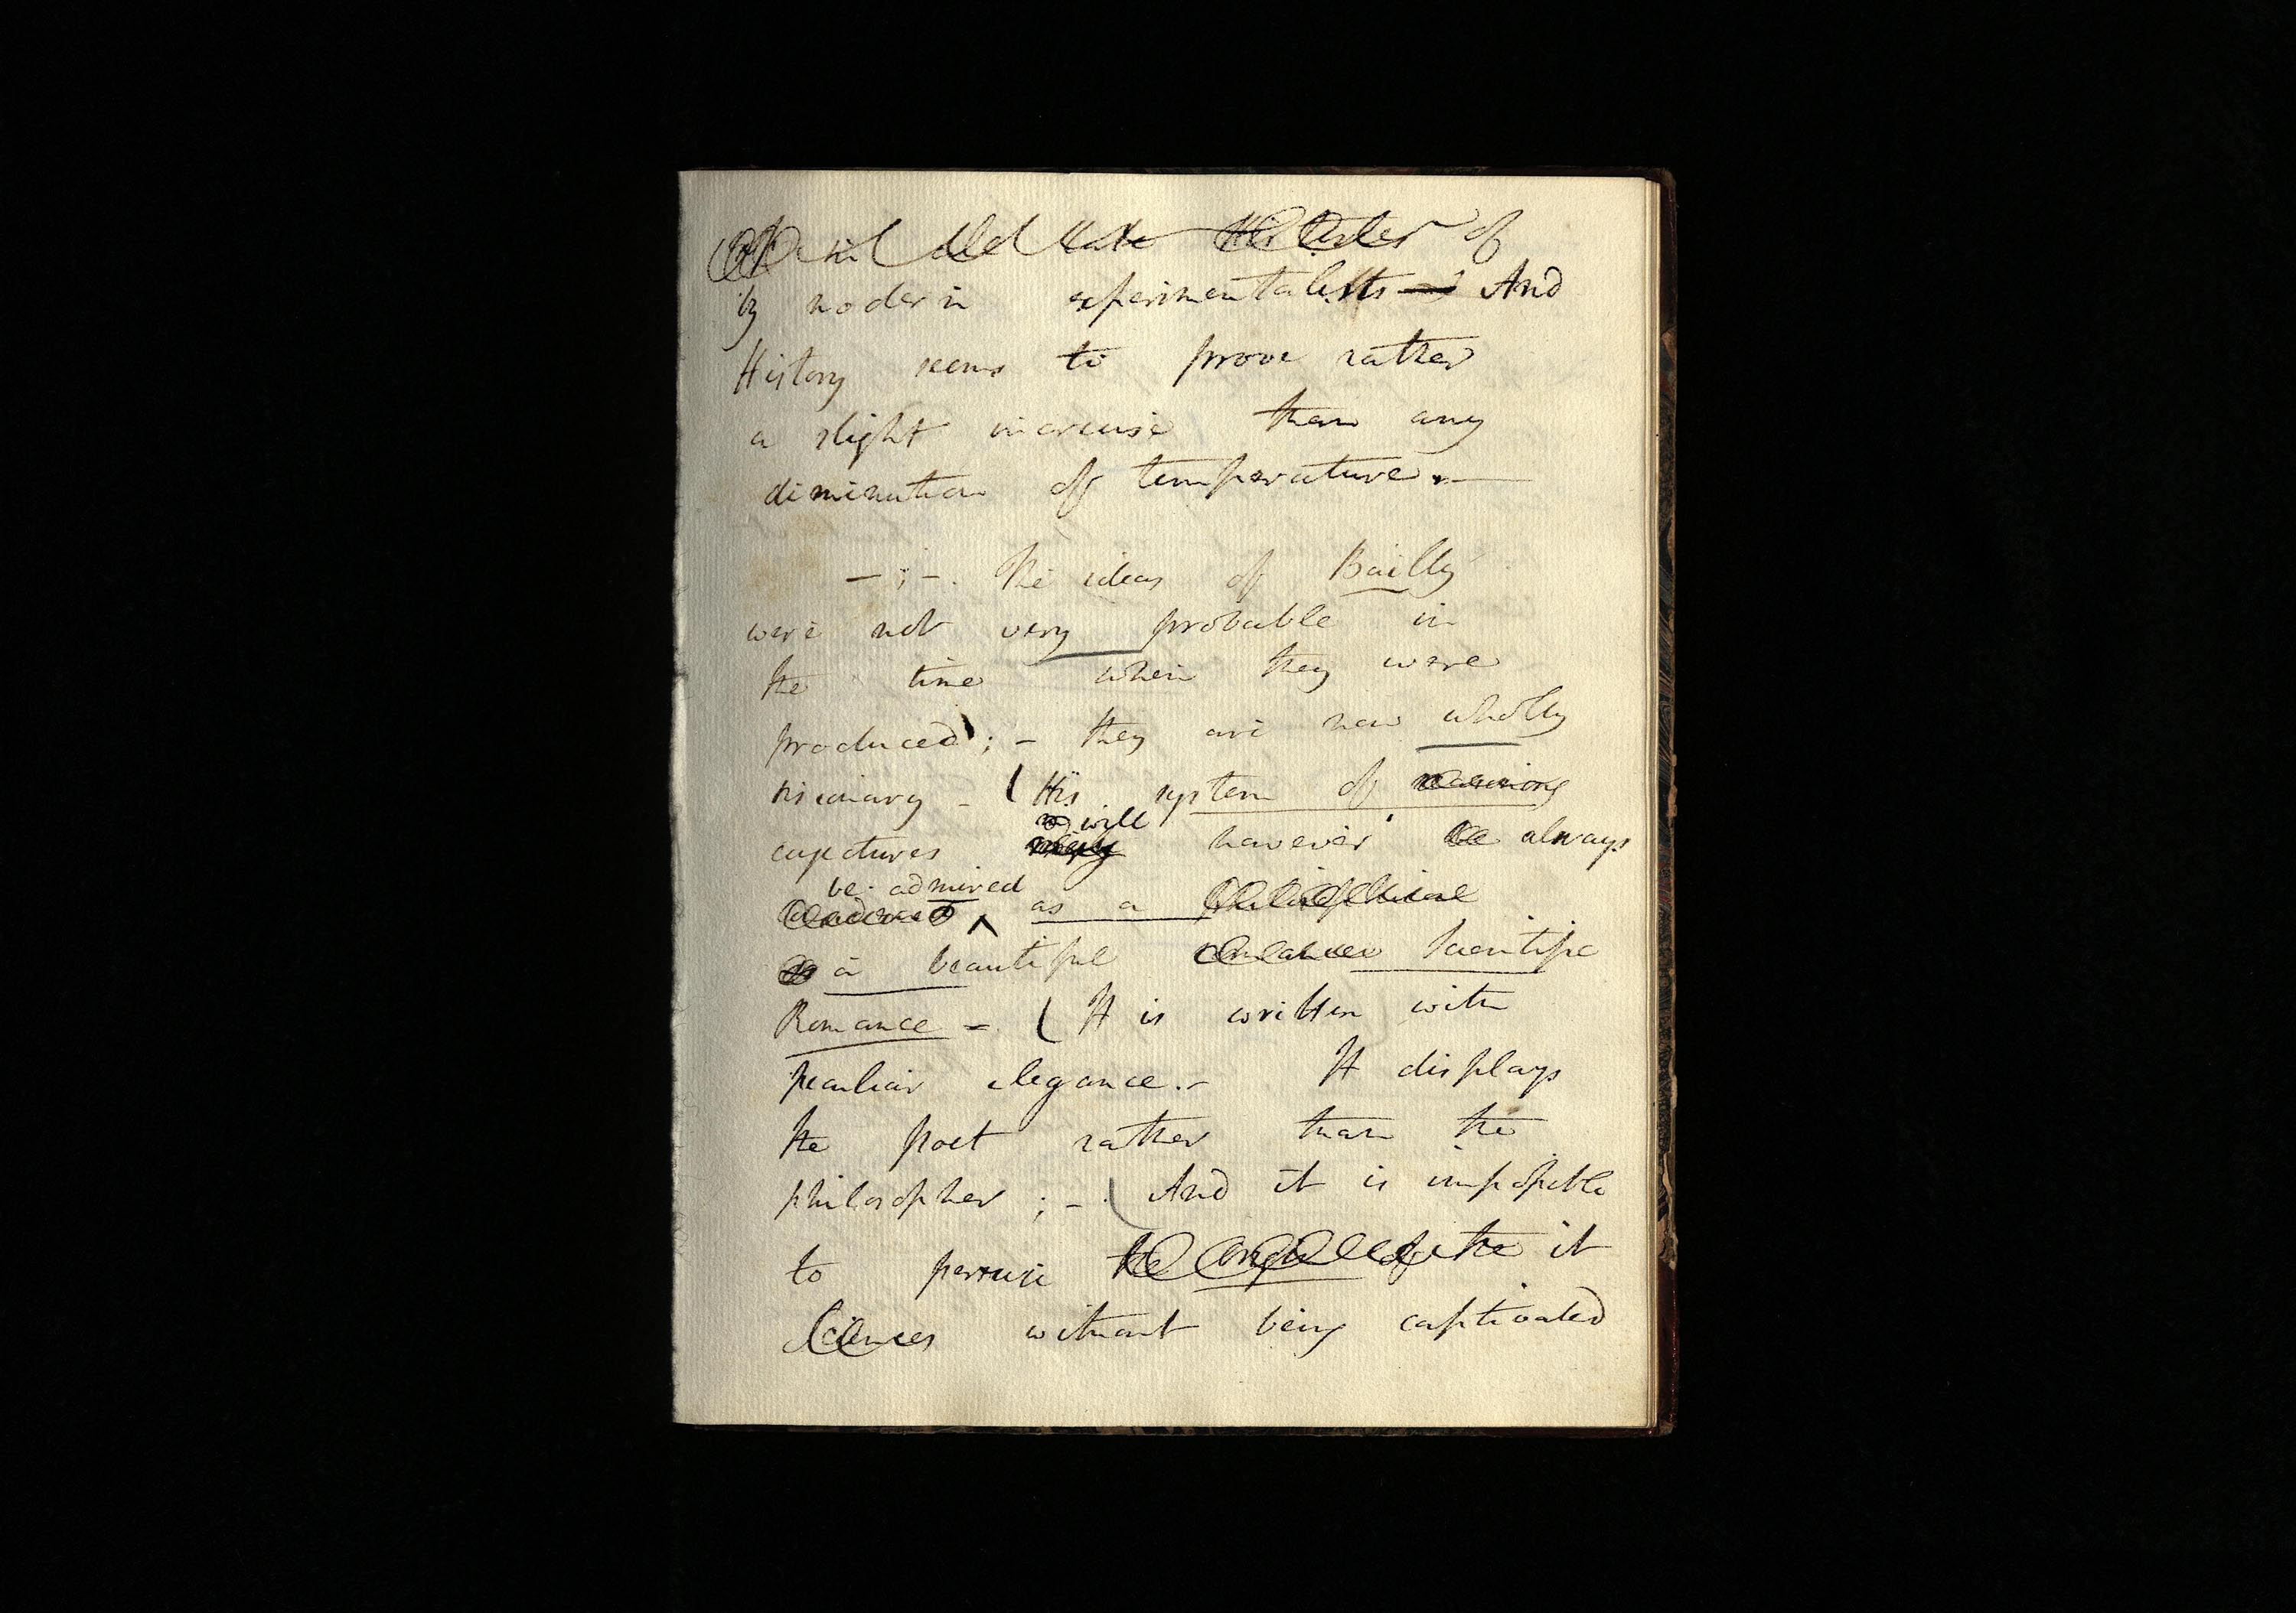 of
by modern experimentalists And
History seems to prove rather
a slight increase than any
diminution of temperature. —
— ; —. The ideas of Bailly
were not very probable in
the time when they were
produced; — they are now wholly
visionary — (His system of reasoning
will
conjectures however be always
be admired
as a philosophical
a beautiful romance Scientific
Romance — (It is written with
peculiar elegance. — It displays
the poet rather than the
philosopher ; — (And it is impossible
to peruse the of the it
Sciences without being captivated